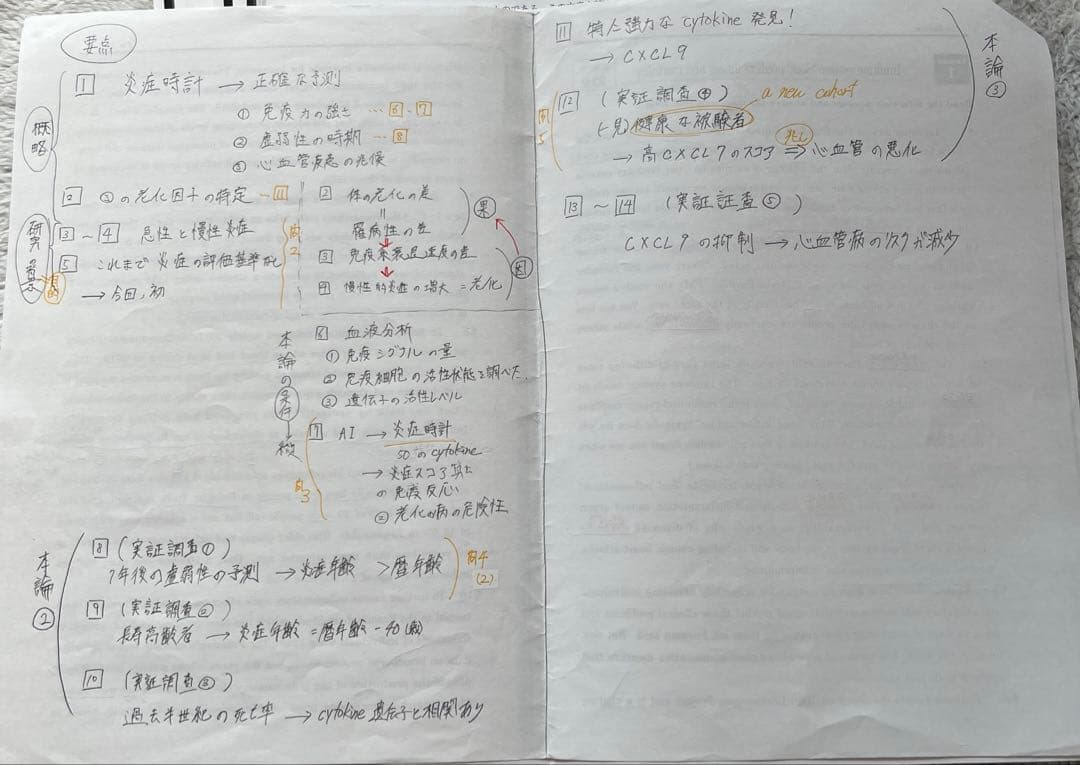 要点
概略
1 炎症時計 → 正確な予測
① 免疫力の強さ …6・7
② 虚弱性の時期 …8
③ 心血管疾患の兆候
2 ③の老化因子の特定 …11
研究の背景
3 ~ 4 急性と慢性炎症
5 これまで 炎症の評価基準なし
目的
→ 今回、初
問2
2 体の老化の差
=
罹病性の差
果
3 免疫系衰退速度の差
4 慢性的炎症の増大 = 老化
因
本論の条件→
6 血液分析
① 免疫シグナルの量
② 免疫細胞の活性状態を調べた.
③ 遺伝子の活性レベル
問3
7 AI → 炎症時計
50のcytokine
→ 炎症スコア
の免疫反応
② 老化の病の危険性
本論②
8 (実証調査①)
7年後の虚弱性の予測 → 炎症年齢 > 暦年齢
問4
(2)
9 (実証調査②)
長寿高齢者 → 炎症年齢 = 暦年齢 - 40(歳)
10 (実証調査③)
過去半世紀の死亡率 → cytokine遺伝子と相関あり
本論③
11 特に強力な cytokine 発見!
→ CXCL9
問5
12 (実証調査④)
a new cohort
(一見)健康な被験者
→ 高CXCL7のスコア ⇒ 心血管の悪化
兆し
13 ~ 14 (実証証査⑤)
CXCL9の抑制 → 心血管病のリスクが減少